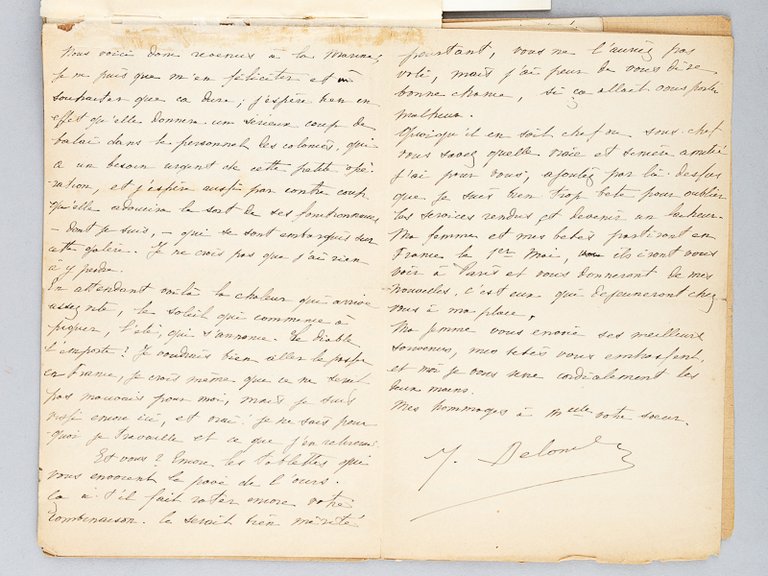 Nous voici donc revenus à la Marine;
je ne puis que m'en féliciter et
souhaiter que ça dure; j'espère bien en
effet qu'elle donnera un sérieux coup de
balai dans le personnel des colonies, qui
a un besoin urgent de cette petite opé-
ration, et j'espère aussi par contre coup
qu'elle adoucira le sort de ses fonctionnaires,
- dont je suis, - qui se sont embarqués sur
cette galère. Je ne crois pas que j'aie rien
à y perdre.
En attendant voilà la chaleur qui arrive
assez vite, le soleil qui commence à
piquer, l'été, qui s'annonce. Le diable
l'emporte! Je voudrais bien aller le passer
en France, je crois même que ce ne serait
pas mauvais pour moi, mais je suis
encore ici, et vrai! je ne sais pour
quoi je travaille et ce que j'en retirerai
Et vous? Encore les tablettes qui
vous envoient le pavé de l'ours.
Ça a-t'il fait rater encore votre
combinaison. Ce serait bien mérité
pourtant, vous ne l'auriez pas
volé, mais j'ai peur de vous dire
bonne chance, si ça allait vous porter
malheur.
Quoiqu'il en soit chef ou sous-chef
vous savez quelle vraie et sincère amitié
j'ai pour vous, ajoutez par là-dessus
que je suis bien trop bête pour oublier
les services rendus et devenir un lâcheur.
Ma femme et mes bébés partiront en
France le 1er Mai, ils iront vous
voir à Paris et vous donneront de mes
nouvelles. C'est eux qui déjeuneront chez
vous à ma place.
Ma femme vous envoie ses meilleurs
souvenirs, mes bébés vous embrassent,
et moi je vous serre cordialement les
deux mains.
Mes hommages à Melle votre soeur.